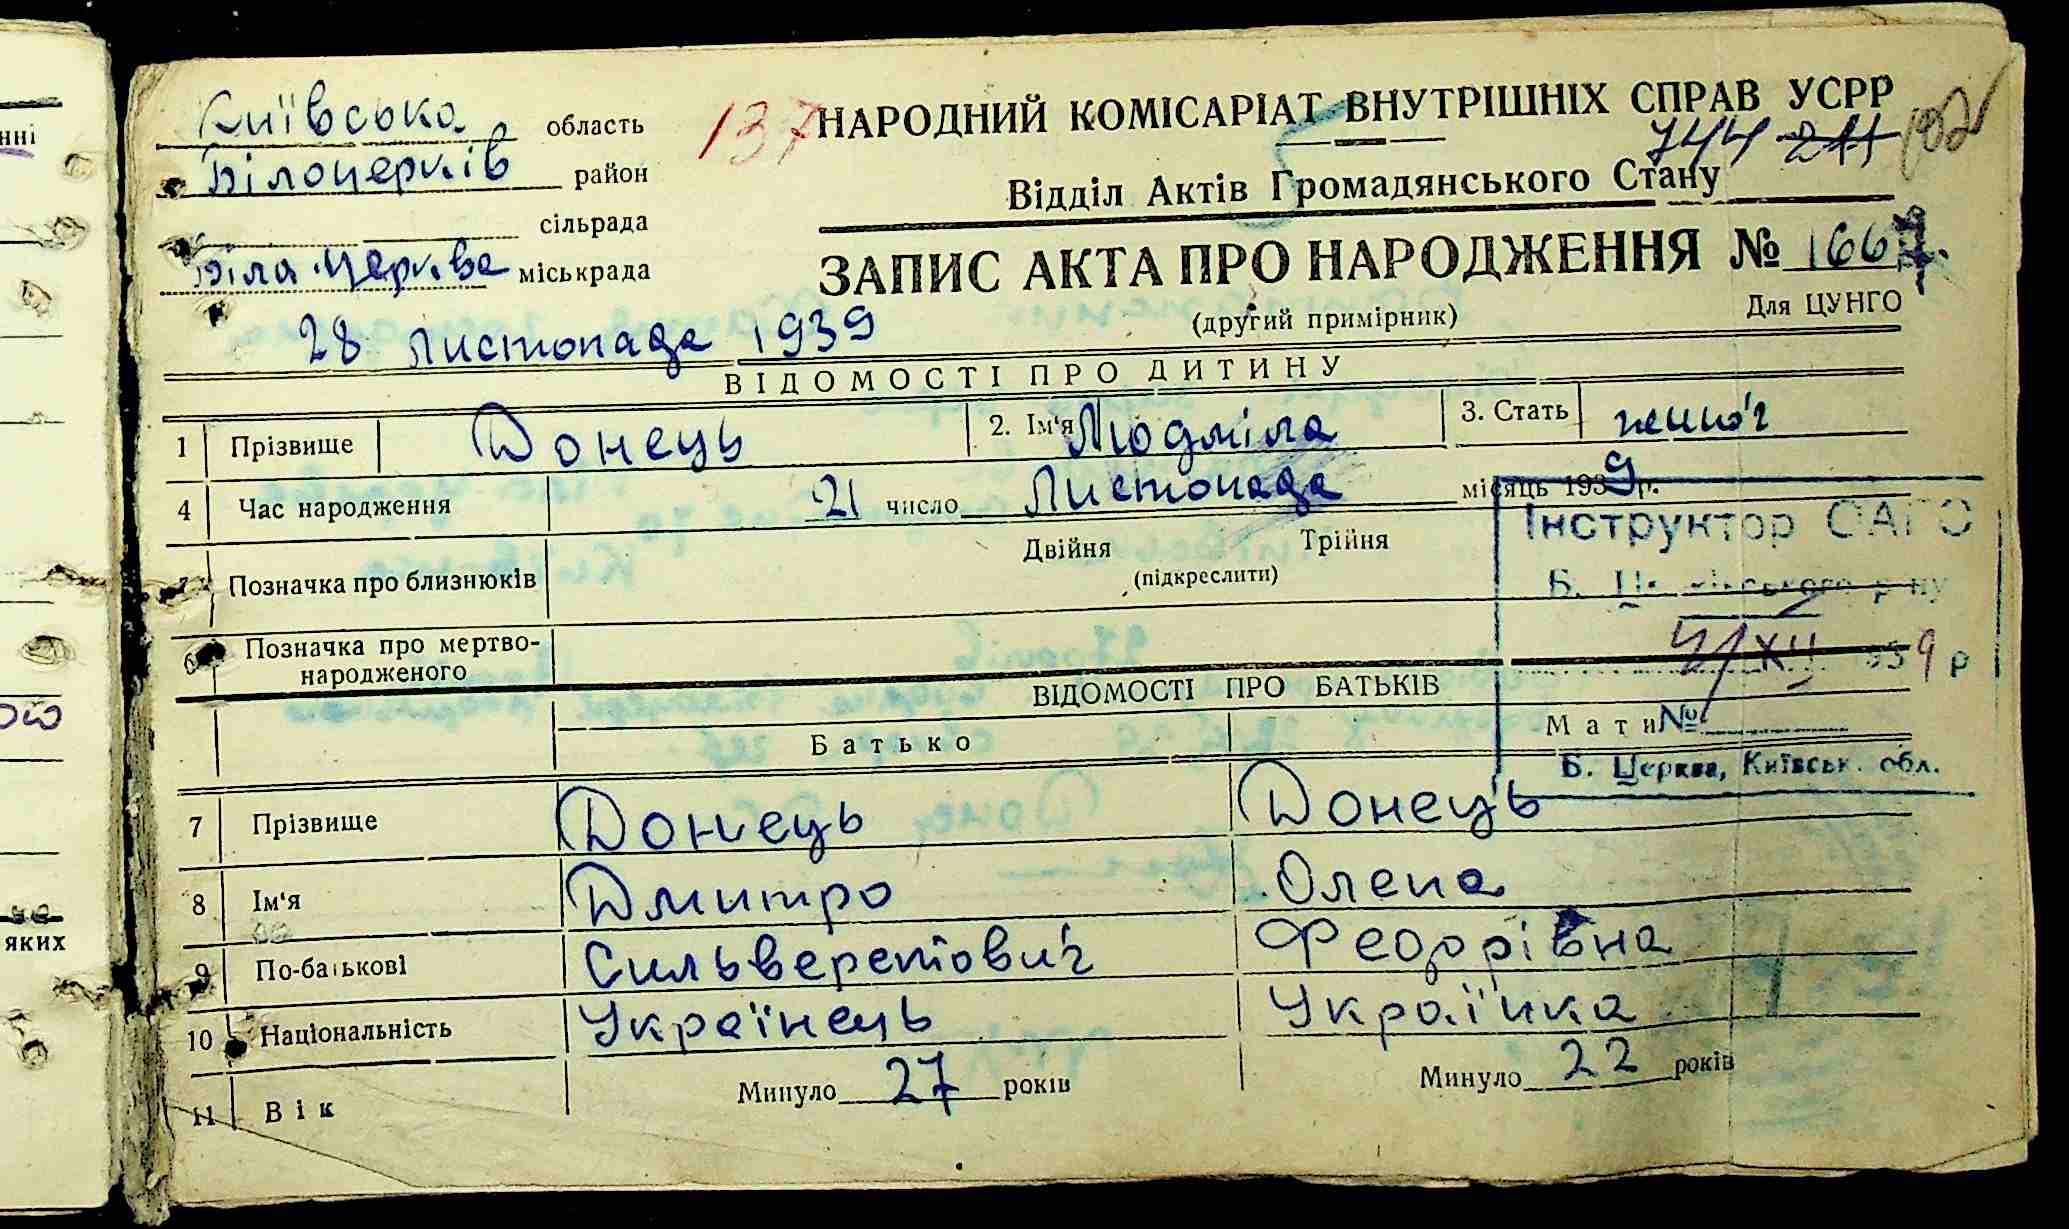 Київська область
137 НАРОДНИЙ КОМІСАРІАТ ВНУТРІШНІХ СПРАВ УСРР
Білоцерків район
744 211 192
Відділ Актів Громадянського Стану
сільрада
Біла Церква міськрада
ЗАПИС АКТА ПРО НАРОДЖЕННЯ № 1667
(другий примірник) Для ЦУНГО
28 Листопада 1939
ВІДОМОСТІ ПРО ДИТИНУ
1 Прізвище Донець 2. Ім'я Людміла 3. Стать жіноч
4 Час народження 21 число Листопада місяць 1939 р.
Інструктор ОАГС
Позначка про близнюків Двійня Трійня
(підкреслити)
Б.
6 Позначка про мертво-
народженого
XII 1939 р
ВІДОМОСТІ ПРО БАТЬКІВ
Батько Мати
№
Б. Церква, Київськ. обл.
7 Прізвище Донець Донець
8 Ім'я Дмитро Олена
9 По-батькові Сильверстович Федорівна
10 Національність Українець Українка
11 Вік Минуло 27 років Минуло 22 років
нні
ою
яких